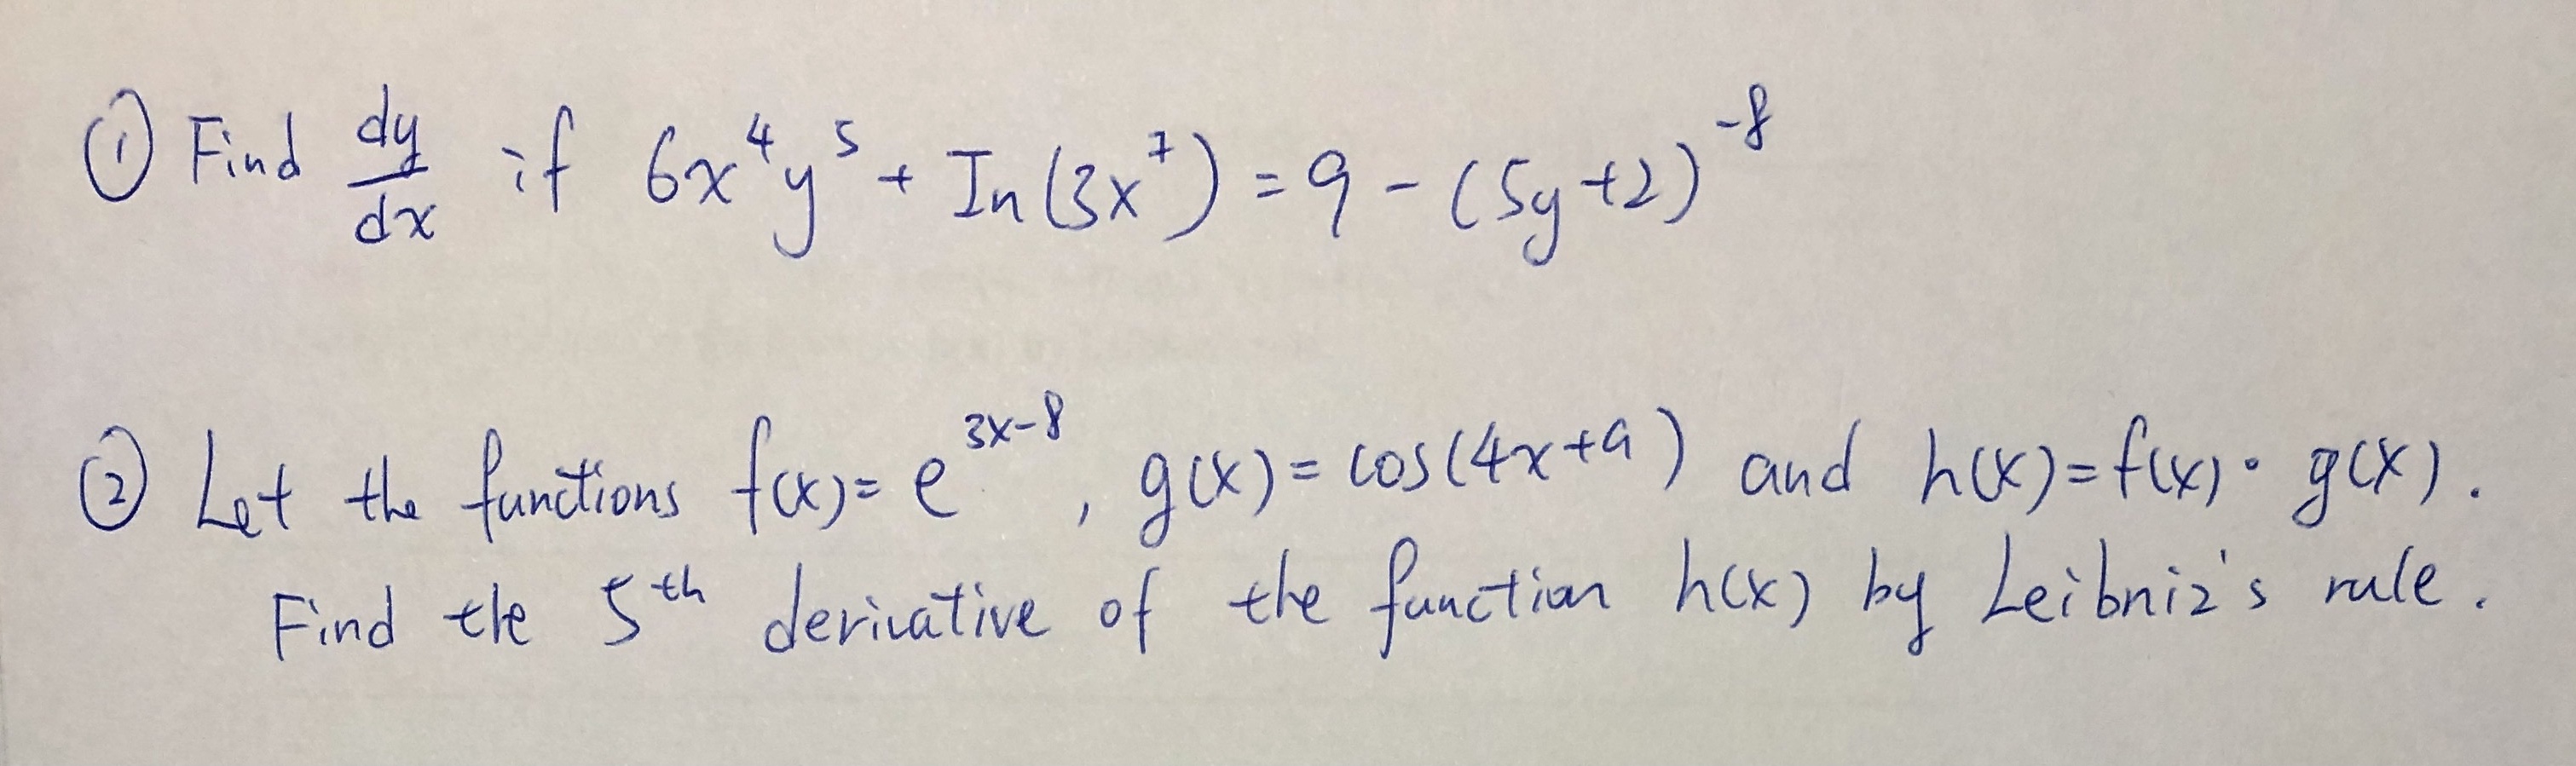 ① Find dy/dx if 6x⁴y⁵ + In(3x⁷) = 9 - (5y+2)⁻⁸
② Let the functions f(x) = e³ˣ⁻⁸, g(x) = cos(4x+9) and h(x) = f(x) · g(x).
Find the 5ᵗʰ derivative of the function h(x) by Leibniz's rule.